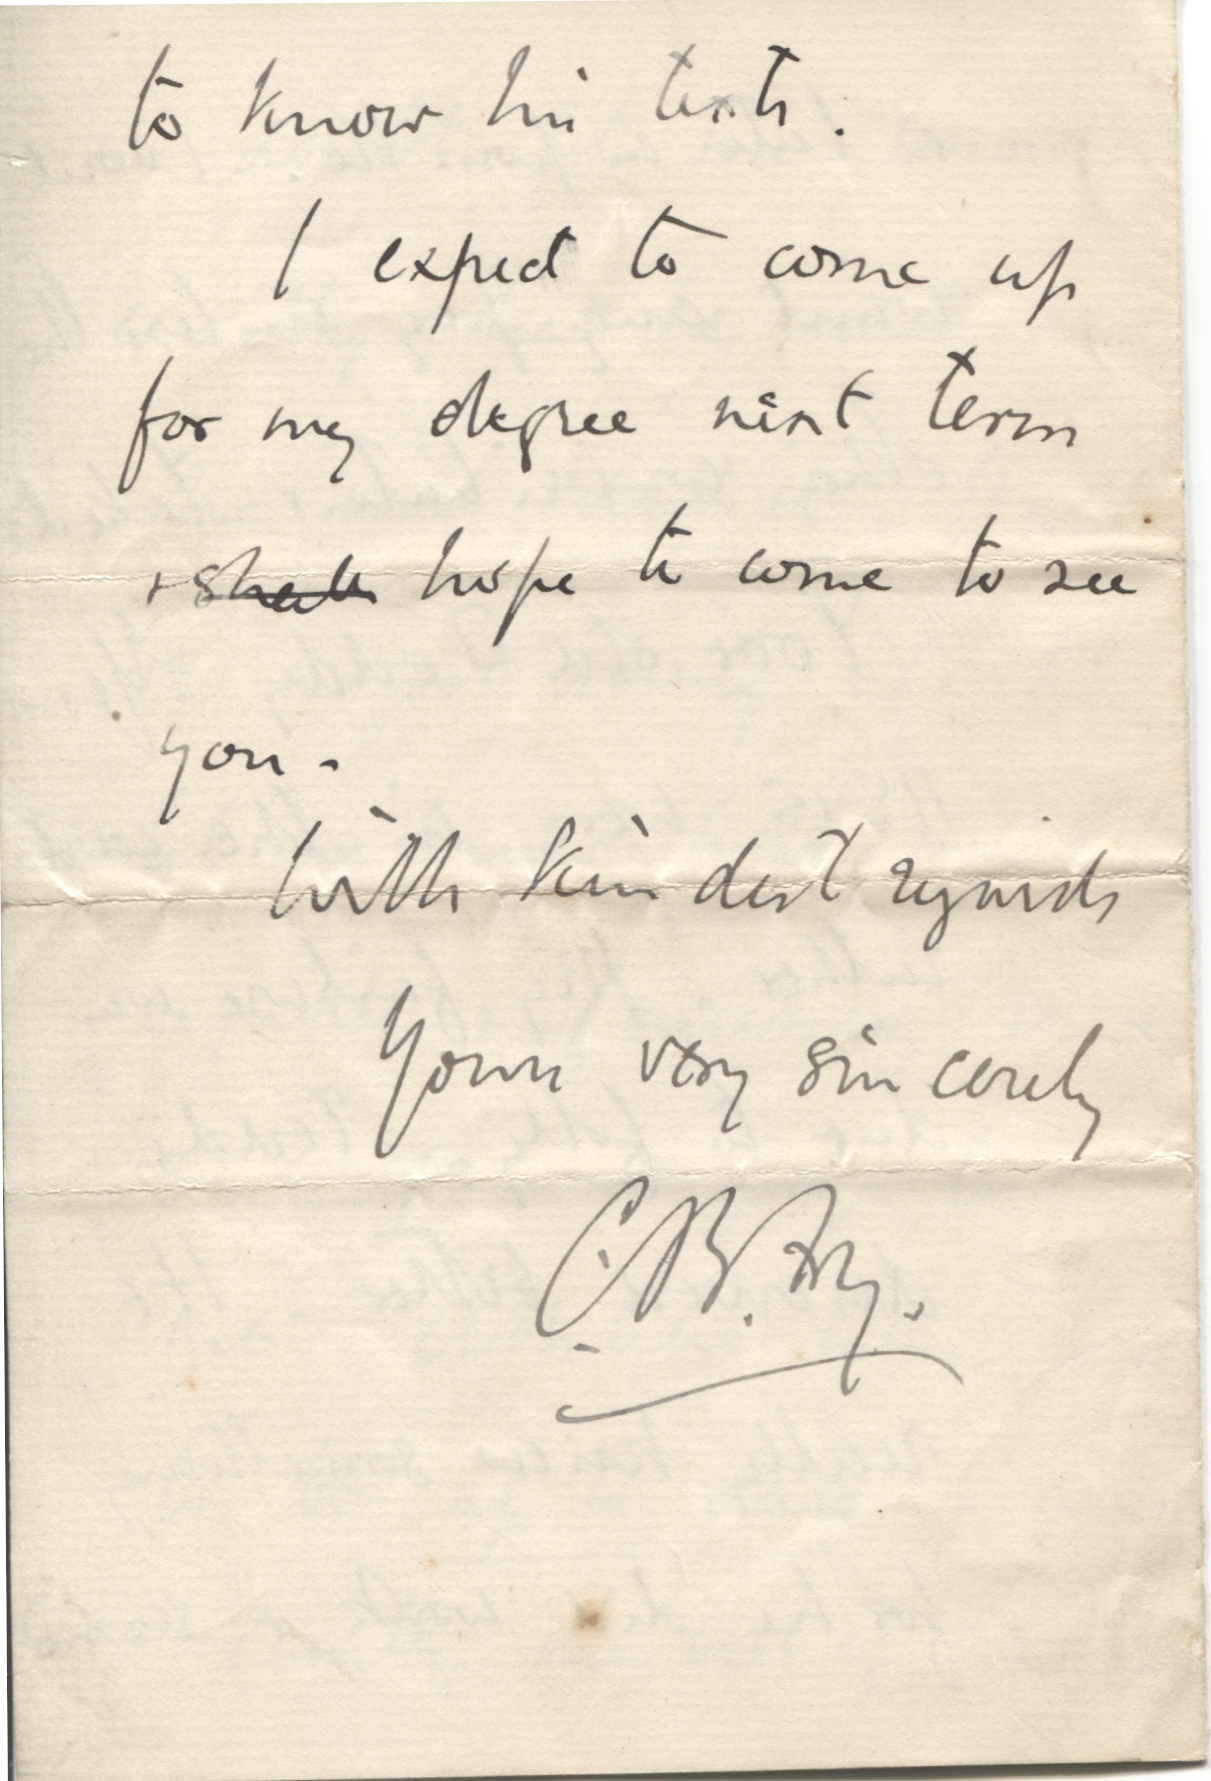 to know his texts.
I expect to come up
for my degree next term
+ shall hope to come to see
you.
With kindest regards
Yours very sincerely
C. B. Fry.